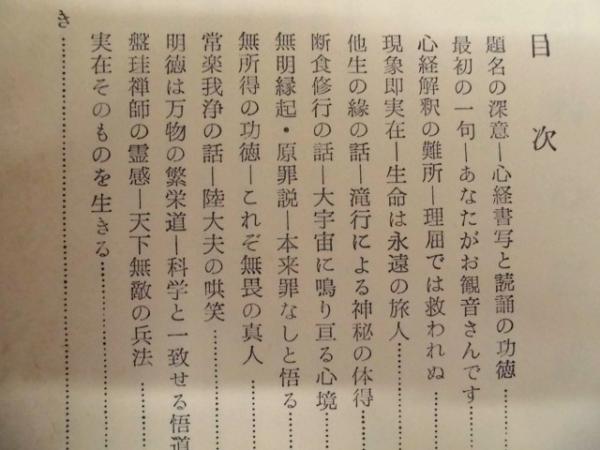 目次
題名の深意―心経書写と読誦の功徳
最初の一句―あなたがお観音さんです
心経解釈の難所―理屈では救われぬ
現象即実在―生命は永遠の旅人
他生の緣の話―滝行による神秘の体得
断食修行の話―大宇宙に鳴り亘る心境
無明縁起・原罪説―本来罪なしと悟る
無所得の功徳―これぞ無畏の真人
常楽我浄の話―陸大夫の哄笑
明徳は万物の繁栄道―科学と一致せる悟道
盤珪禅師の霊感―天下無敵の兵法
実在そのものを生きる
き